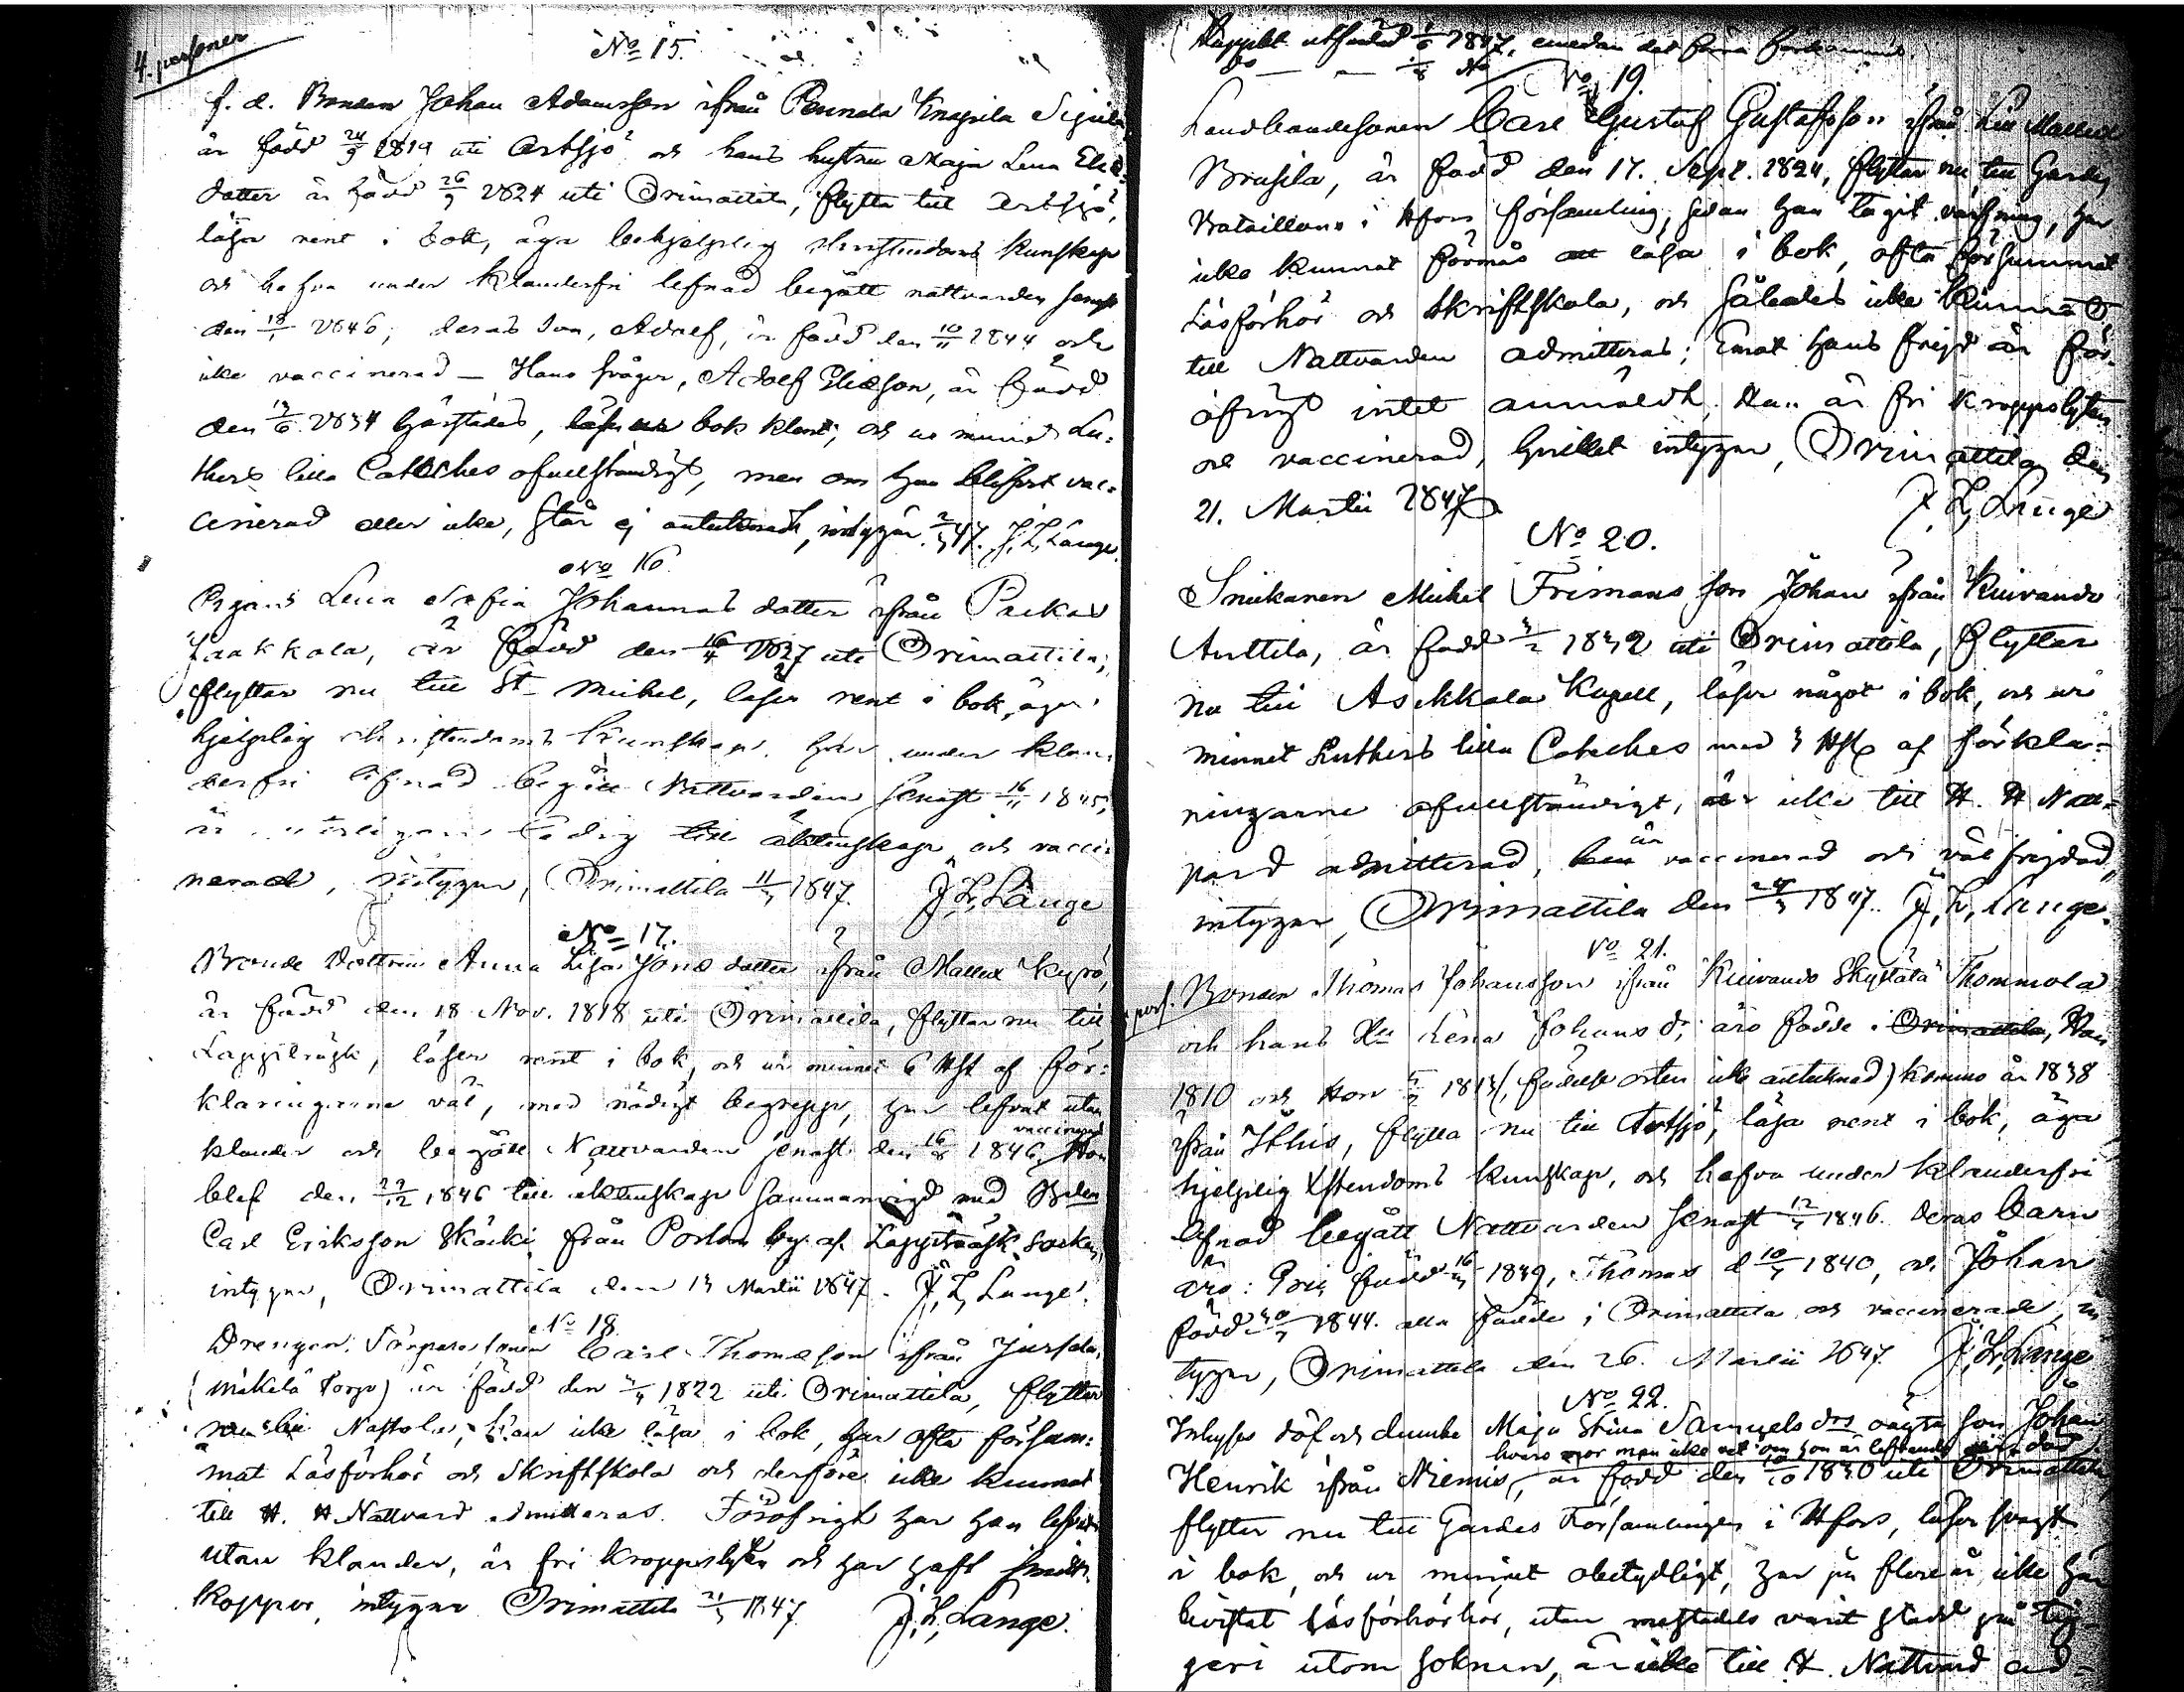 4. personer
No 15.
f. d. Bonden Johan Adamsson ifrån Pennala Knapila
är född 24/9 1819 uti Artsjö och hans hustru Maja Lena Eliæ
dotter är född 26/9 1824 uti Orimattila, flytta till Artsjö,
läsa rent i bok, äga behjelplig christendoms kunskap
och hafva under klanderfri lefnad begått nattvarden senast
den 18/1 1846; deras son, Adolf, är född den 10/11 1844 och
icke vaccinerad — Hans svåger, Adolf Eliæson, är född
den 12/6 1834 härstädes, bok klent, och ur minnet Lu-
thers lilla Catches ofullständigt, men om han blifvit vac-
cinerad eller icke, står ej antecknadt, intygar 2/3 47. J. L. Lange.
No 16.
Pigan Lena Sofia Johannes dotter ifrån Packas
Jaakkola, är född den 16/4 1827 uti Orimattila,
flyttar nu till St Michel, läser rent i bok, äger
hjelplig christendoms kunskap, har under klan-
derfri lefnad begått Nattvarden senast 16/11 1845,
är ledig till äktenskap och vacci-
nerad, intygar, Orimattila 11/3 1847. J. L. Lange
No 17.
Bonde dottren Anna Lisa Jonæ dotter ifrån Mallux Kyrö,
är född den 18 Nov. 1818 uti Orimattila, flyttar nu till
Lappträsk, läser rent i bok, och ur minnet 6 Hst af för-
klaringarne väl, med nödigt begrepp, har lefvat utan
klander och begått Nattvarden senast den 16/8 1846, vaccinerad Hon
blef den 27/12 1846 till äktenskap sammanvigd med
Carl Eriksson Skäcki från Porlom by af Lappträsk socken,
intygar, Orimattila den 13 Martii 1847. J. L. Lange.
No 18.
Drengen, Carl Thomæson ifrån
(Mäkelä torp) är född den 3/4 1822 uti Orimattila, flyttar
nu till Nastola, kan icke läsa i bok, har ofta försum-
mat Läsförhör och Skriftskola och derföre icke kunnat
till H. H. Nattvard admitteras. Föröfrigt har han lefvat
utan klander, är fri kroppslyten och har haft
koppor, intygar Orimattila 21/3 1847 J. L. Lange.
utfärdad 1/6 1847, emedan det förra förkommit
No 19.
Landbondesonen Carl Gustaf Gustafsson ifrån
är född den 17. Sept. 1824, flyttar nu till Gardes
Bataillons i Hfors församling, sedan han tagit värfning, har
icke kunnat förmås att läsa i bok, ofta försummat
Läsförhör och Skriftskola, och således icke kunnat
till Nattvarden admitteras; Emot hans frejd är för-
öfrigt intet anmäldt. Han är fri kroppslyten
och vaccinerad, hvilket intygar, Orimattila den
21. Martii 1847 J. L. Lange
No 20.
Snickaren Michel Frimans son Johan ifrån Kuivando
Anttila, är född 3/2 1832 uti Orimattila, flyttar
nu till Asikkala Kapell, läser något i bok, och ur
minnet Luthers lilla Catches med 3 Hst af förkla-
ringarne ofullständigt, är icke till H. H. Natt-
vard admitterad, är vaccinerad och väl frejdad,
intygar, Orimattila den 24/3 1847. J. L. Lange.
No 21.
pers. Bonden Thomas Johansson ifrån Kuivando Skyttälä Thommola
och hans Hu Lena Johans dr, äro födde i Orimattila, Han
1810 och Hon 1813 (, födelse orten icke antecknad) komne år 1838
ifrån Itthis, flytta nu till Artsjö, läsa rent i bok, äga
hjelplig Xstendoms kunskap, och hafva under klanderfri
lefnad begått Nattvarden senast 12/7 1846. Deras barn
äro: född 16/3 1839, Thomas d 10/7 1840, och Johan
född 30/7 1844. alla födde i Orimattila och vaccinerade, in
tygar, Orimattila den 26. Martii 1847. J. L. Lange
No 22.
Inhyses döf och dumba Maja Stina Samuels drs oägta son Johan
hvars mor man icke vet om hon är lefvande eller död
Henrik ifrån Niemis, är född den 10/10 1830 uti Orimattila
flyttar nu till Gardes Församlingen i Hfors, läser svagt
i bok, och ur minnet obetydligt, har på flere år icke här
bevistat läsförhörhör, utan mestadels varit stadd på tig-
geri utom soknen, är icke till H. Nattvard ad-